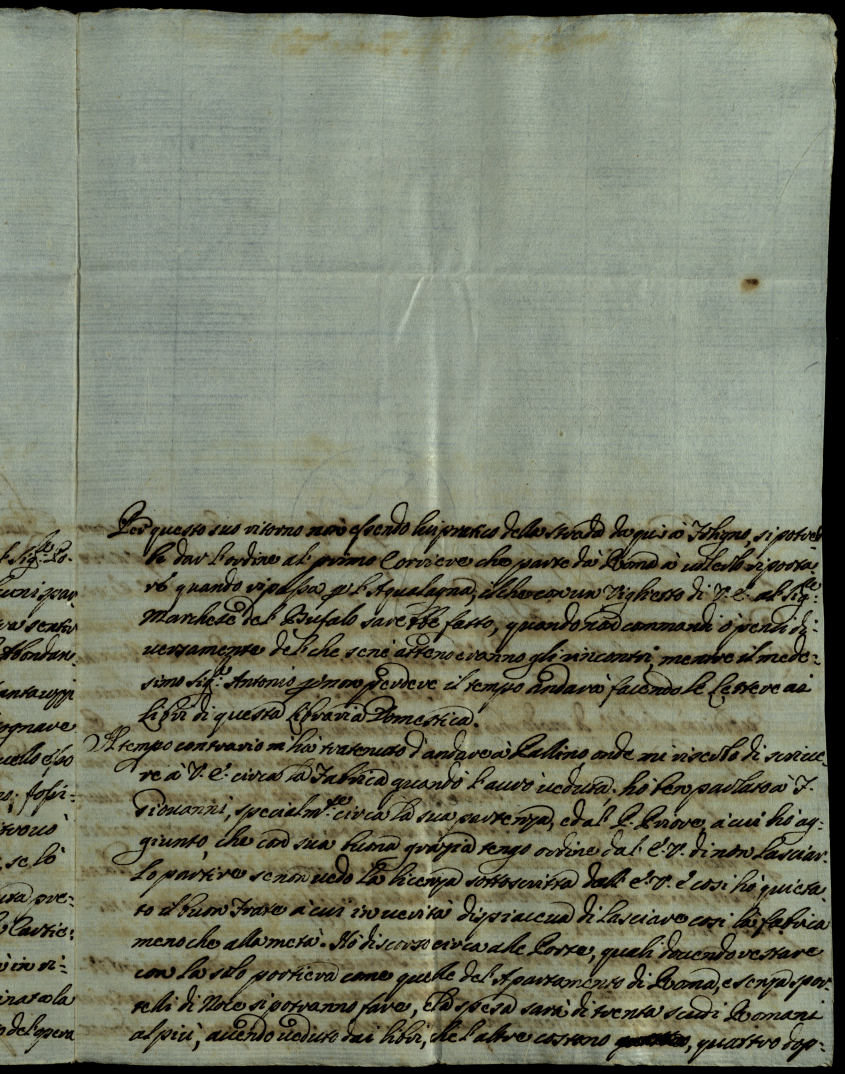 Per questo suo ritorno non essendo lui pratico della strada da qui a Foligno, si potreb
be dar l'ordine al primo Corriere che parte da Roma à
ré quando ripassa p l'Aqualagna, il che con un Viglietto di V. E. al Sig.re
Marchese del Bufalo sarebbe fatto, quando non commandi ò pensi di:
versamente del che se ne attenderanno gli rincontri, mentre il mede:
simo Sig.r Antonio p non perdere il tempo andarà facendo le Lettere ai
libri di questa libraria Domestica.
Il tempo contrario m'hà tratenuto d'andare à Pallino onde mi riserbo di scrive
re à V. E. circa la Fabrica quando l'aurò ueduta. hò ben parlato à F.
Giovanni, specialm.te circa la sua partenza, ed al P. Priore, à cui hò ag:
giunto, che con sua buona grazia tengo ordine dal E. V. di non lasciar
lo partire se non uedo la licenza sottoscritta dall' E. V. e così hò quieta
to il buon Frate à cui in uerità dispiaceua di lasciare così la fabrica
meno che alla metà. Hò discorso circa alle Porte, quali douendo restare
con la solo portiera come quelle del Apartamento di Roma, e senza spor
telli di Noce si potranno fare, e la spesa sarà di trenta scudi Romani
al più, auendo ueduto dai libri, che l'altre costano quattro dop:
l Sig.re Co:
sentir
ognare
uello esso
no. fossi:
trouò
se lò
pre:
Cartie:
in ri:
la
del opera